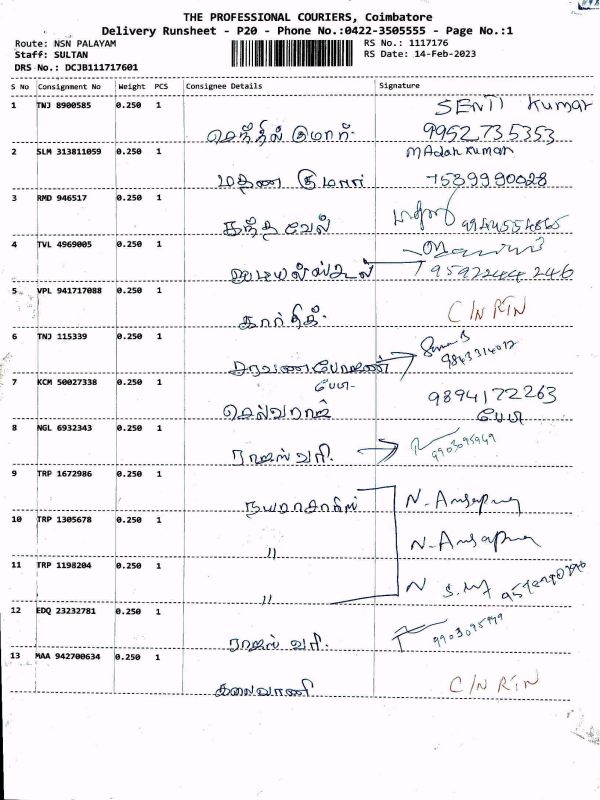 THE PROFESSIONAL COURIERS, Coimbatore
Delivery Runsheet - P20 - Phone No.:0422-3505555 - Page No.:1
Route: NSN PALAYAM RS No.: 1117176
Staff: SULTAN RS Date: 14-Feb-2023
DRS No.: DCJB111717601
S No Consignment No Weight PCS Consignee Details Signature
1 TNJ 8900585 0.250 1 Kumar
செந்தில் குமார். 9952735353
2 SLM 313811059 0.250 1 MAdan kumar
குமார் 7539990028
3 RMD 946517 0.250 1
கந்த வேல்
4 TVL 4969005 0.250 1
9592244246
5 VPL 941717088 0.250 1 C/N RTN
கார்திக்.
6 TNJ 115339 0.250 1
சரவண 9843314017
7 KCM 50027338 0.250 1 பேபி- 9894172263
செல்வராஜ் பேபி
8 NGL 6932343 0.250 1
9903095949
9 TRP 1672986 0.250 1
10 TRP 1305678 0.250 1
"
11 TRP 1198204 0.250 1
"
12 EDQ 23232781 0.250 1 9903095949
13 MAA 942700634 0.250 1 C/N RTN
கலைவாணி